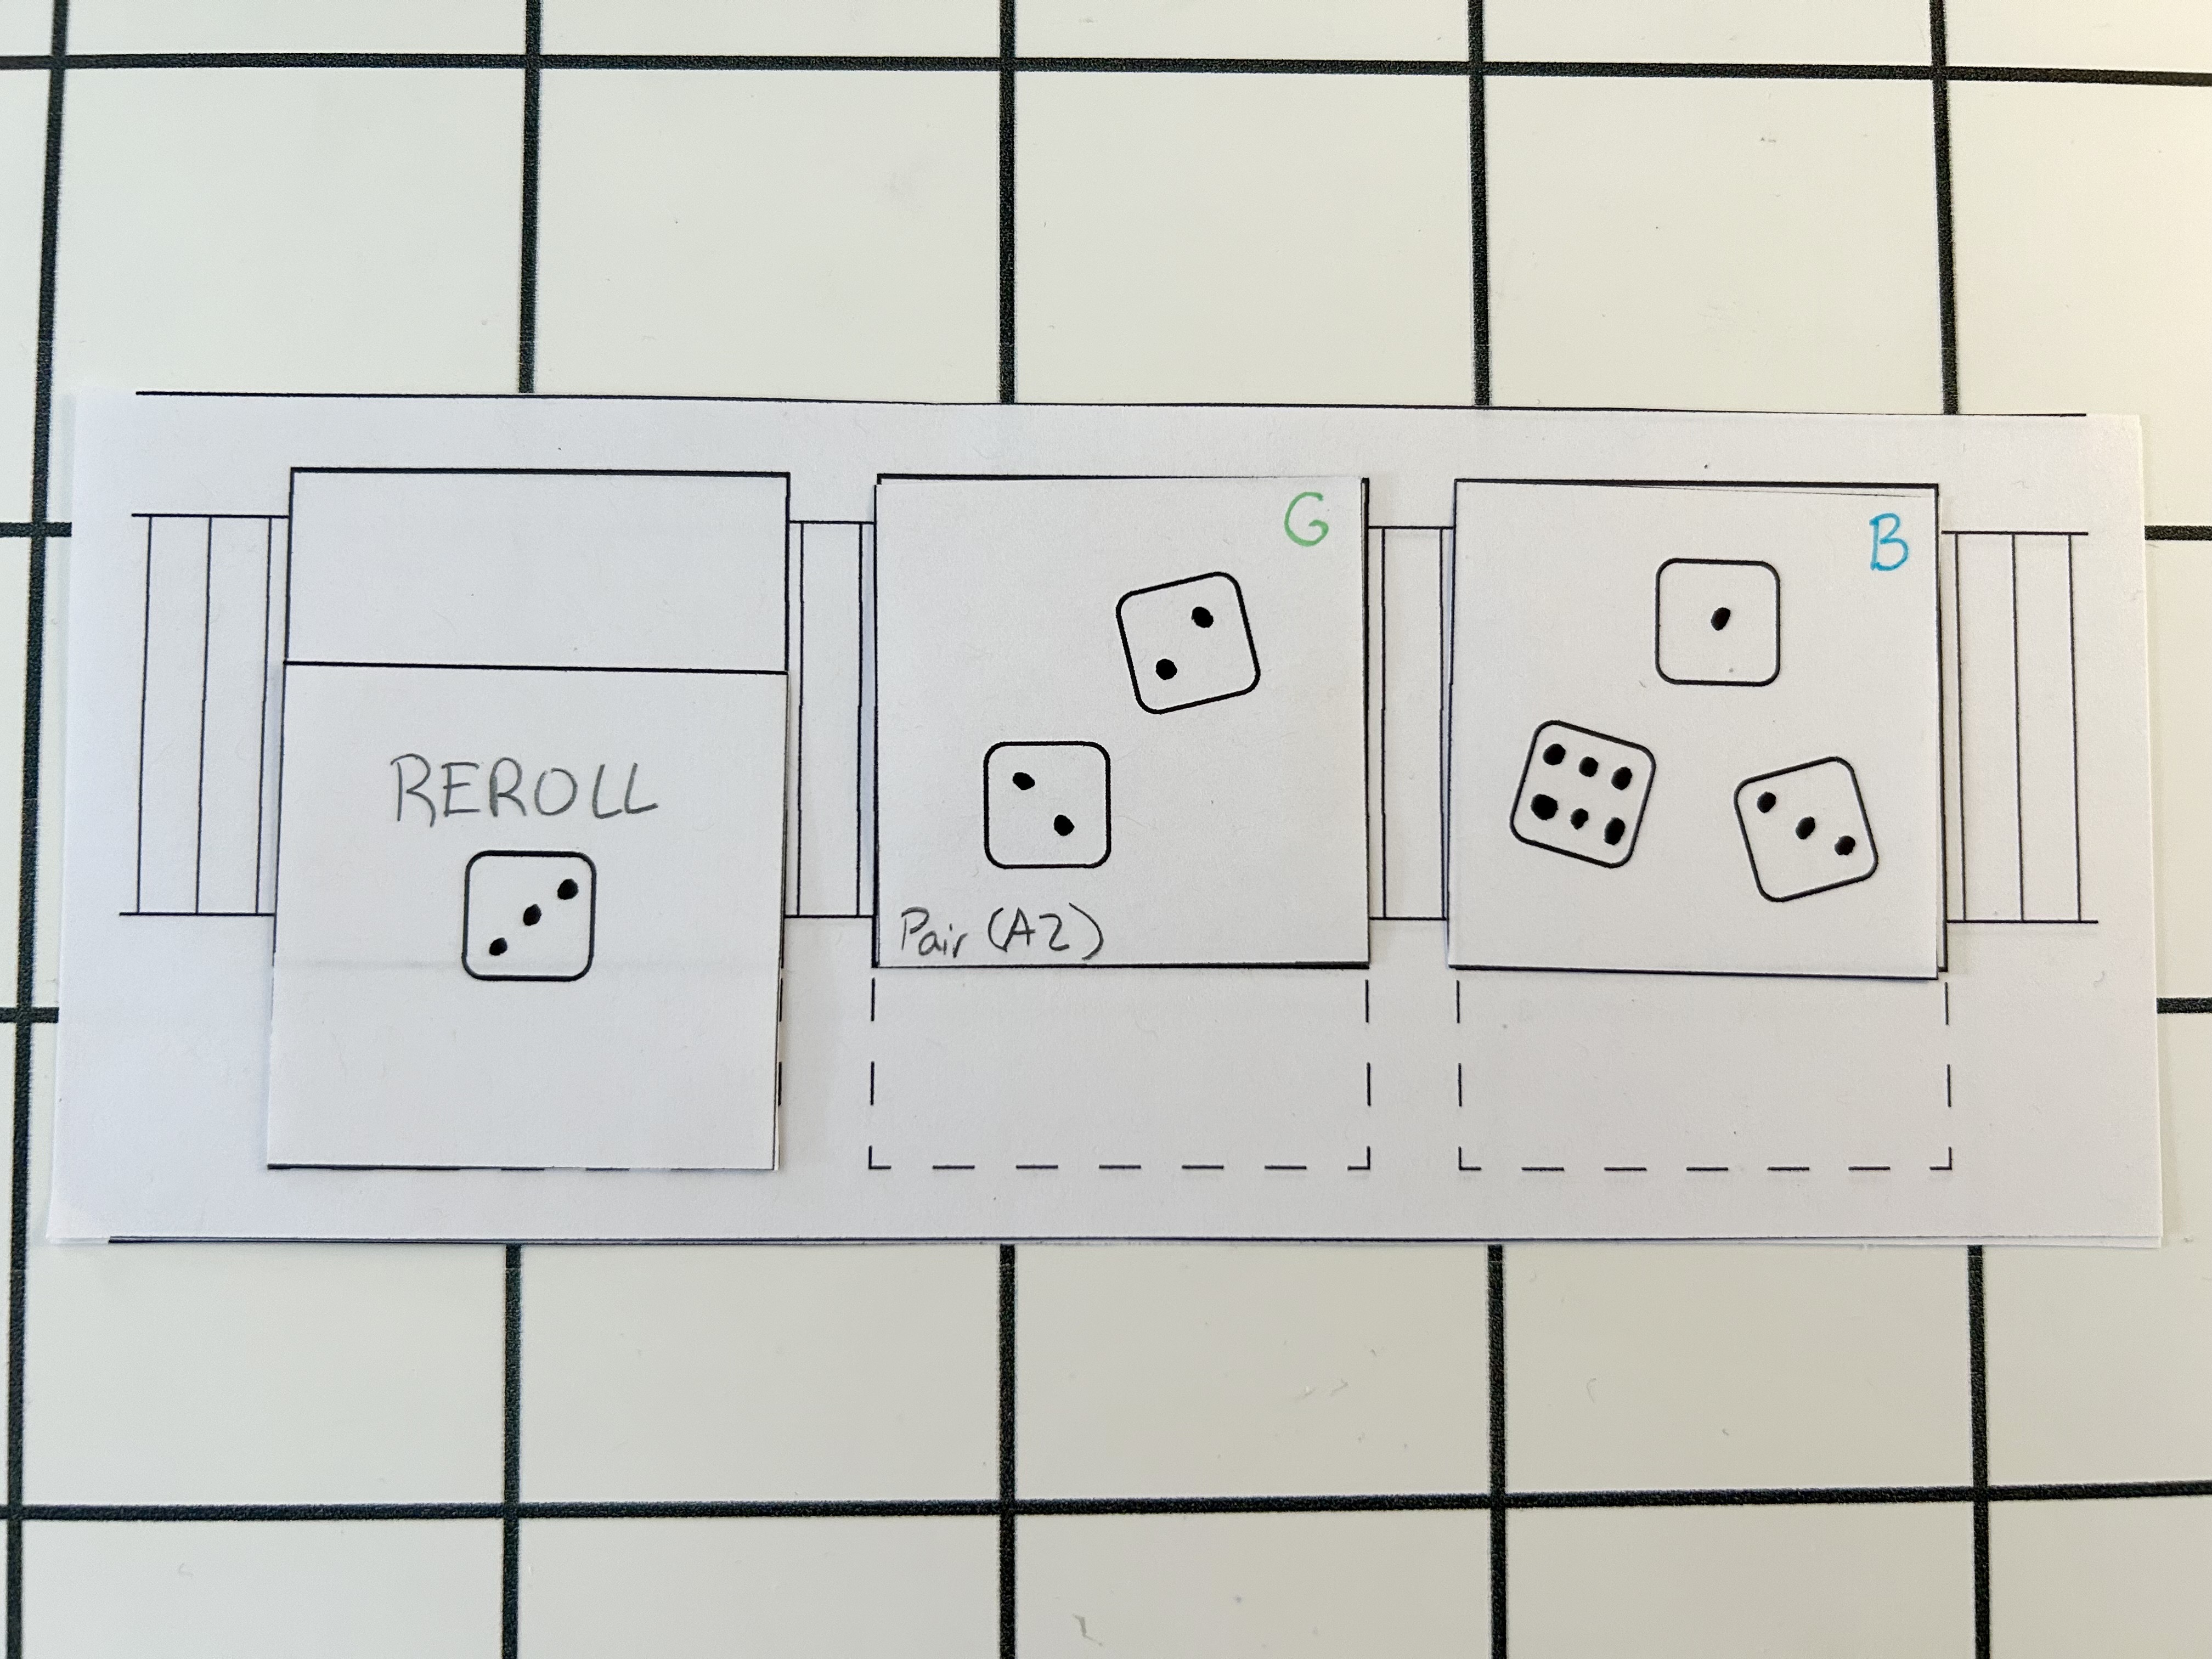 REROLL
G
Pair (A2)
B